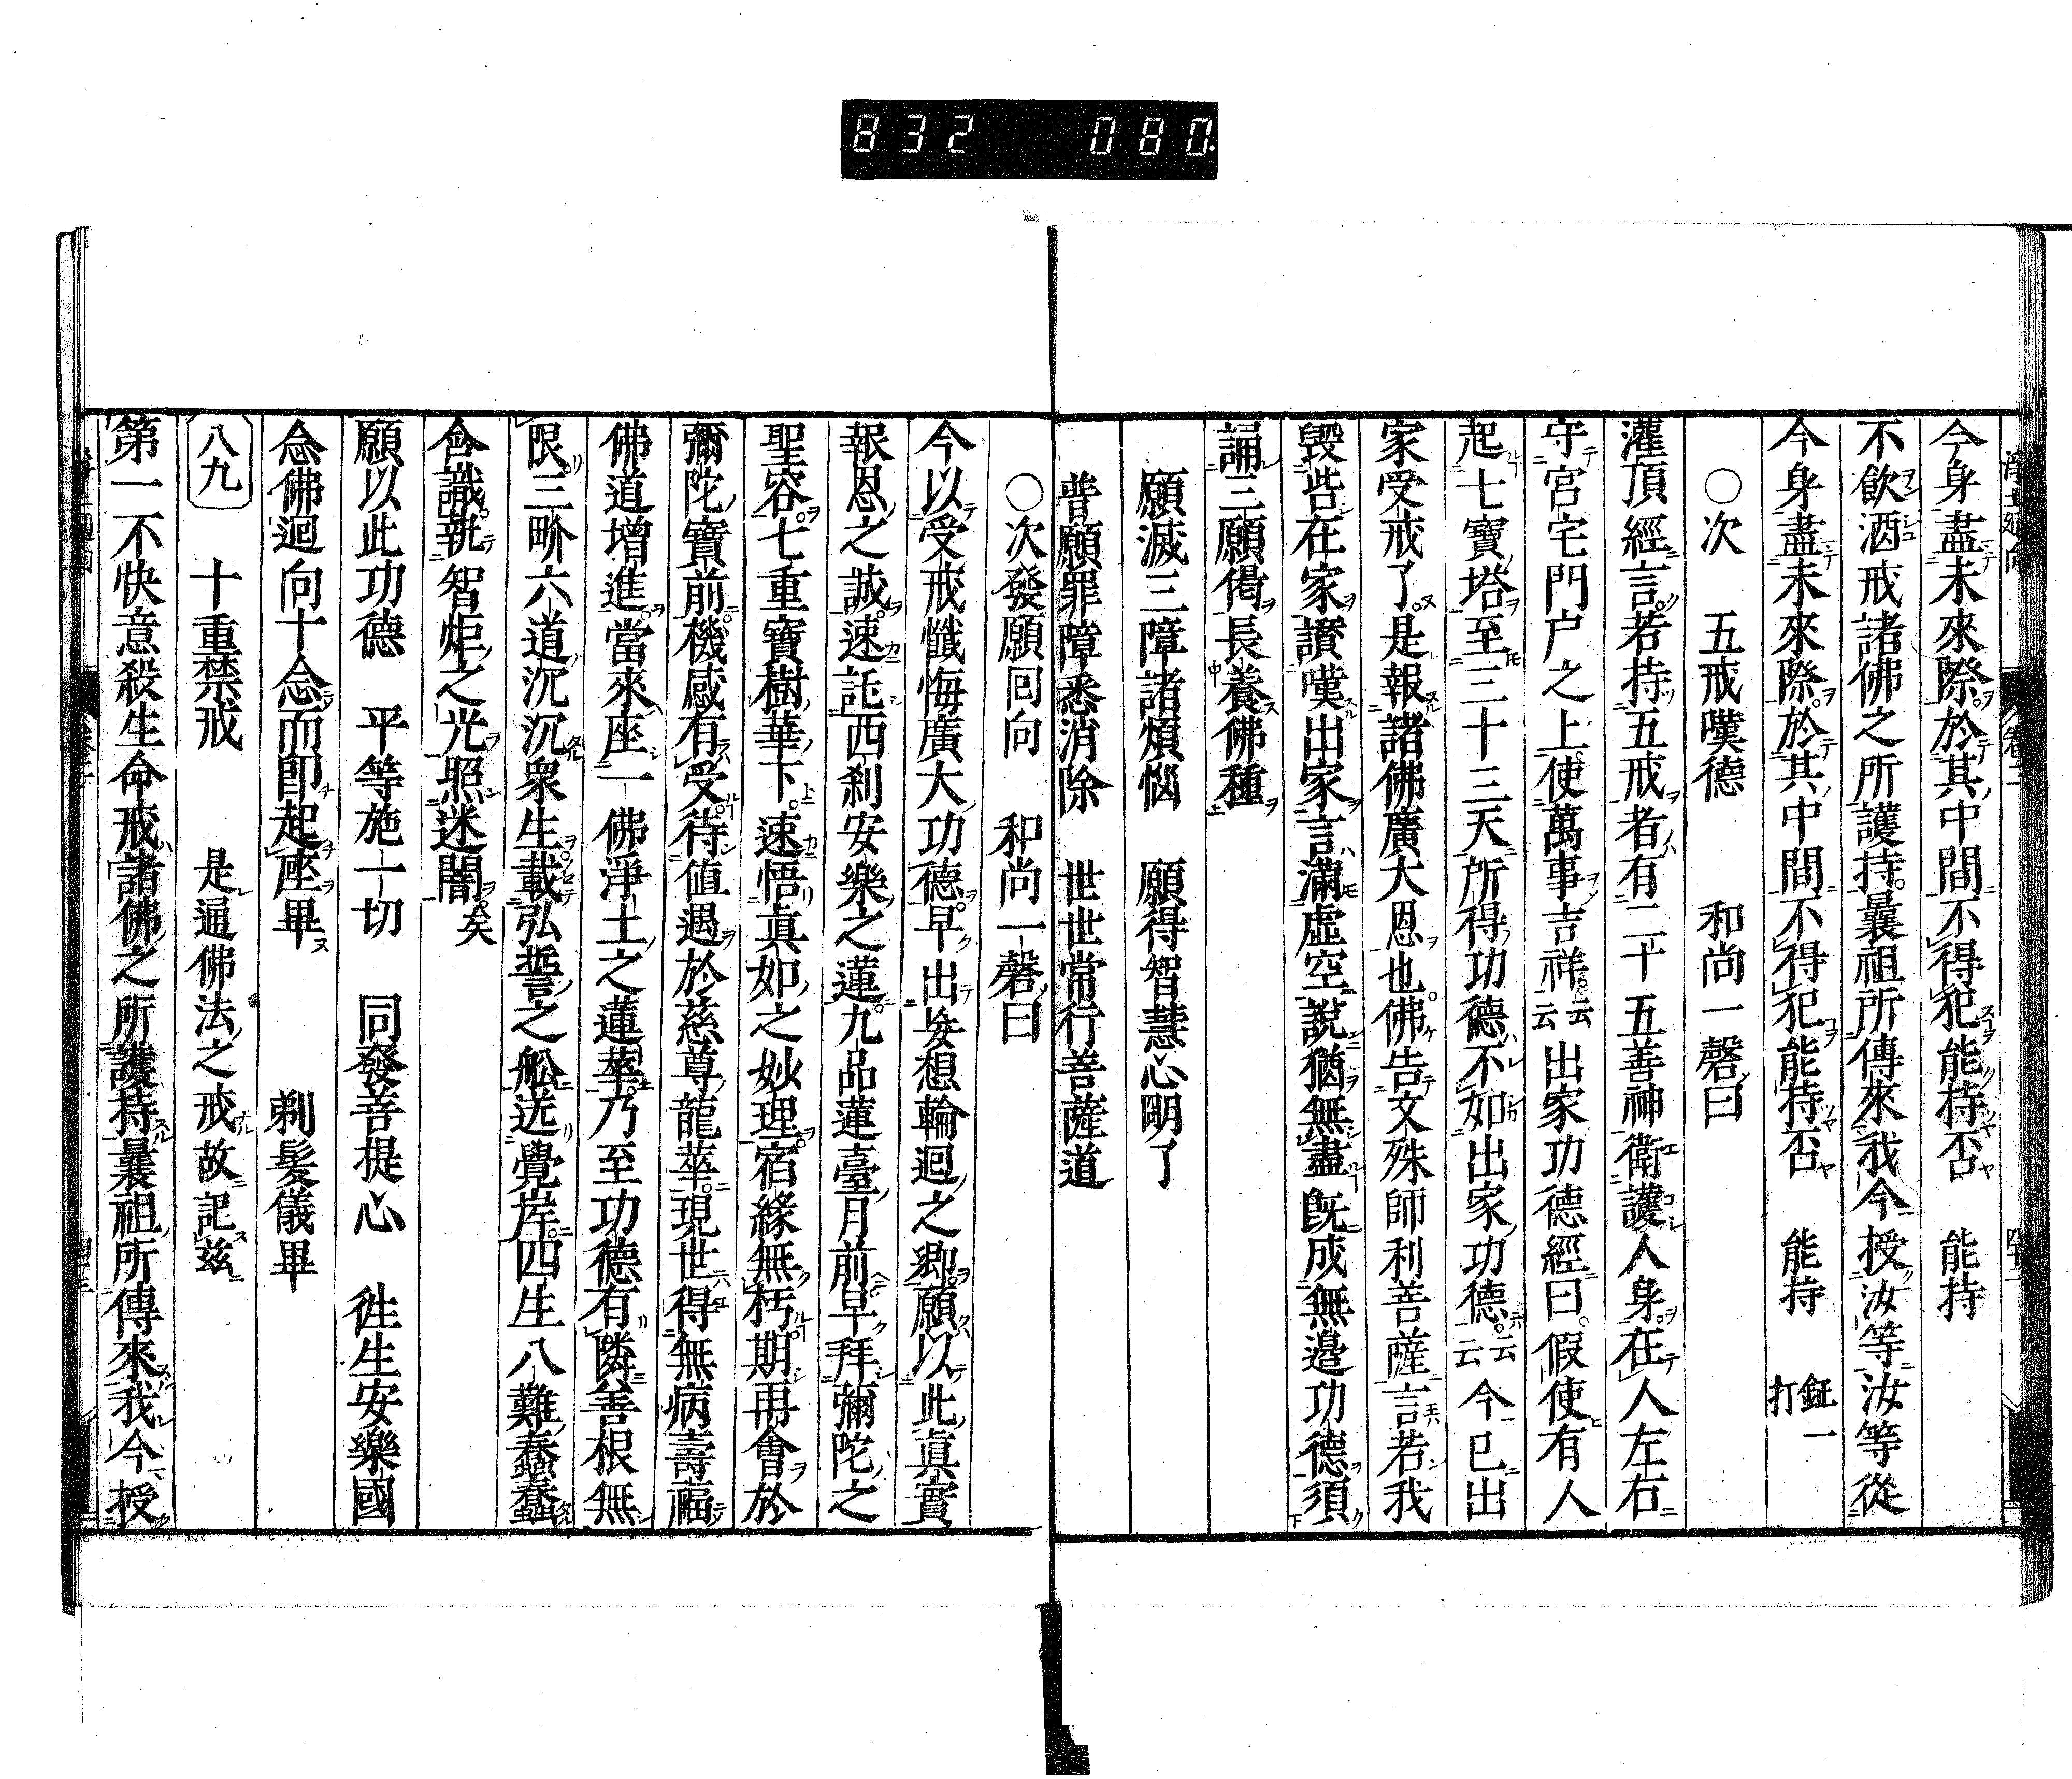 832 080
今身盡未來際於其中間不得犯能持否 能持
不飲酒戒諸佛之所護持曩祖所傳來我今授汝等汝等從
今身盡未來際於其中間不得犯能持否 能持 鉦一打
○次 五戒嘆德 和尚一磬曰
灌頂經言若持五戒者有二十五善神衛護人身在人左右
守宮宅門戸之上使萬事吉祥云云出家功德經曰假使有人
起七寶塔至三十三天所得功德不如出家功德云云今已出
家受戒了是報諸佛廣大恩也佛告文殊師利菩薩言若我
毀呰在家讃嘆出家言滿虛空說猶無盡既成無邊功德須
誦三願偈長養佛種
願滅三障諸煩惱 願得智慧心明了
普願罪障悉消除 世世常行菩薩道
○次發願回向 和尚一磬曰
今以受戒懺悔廣大功德早出妄想輪迴之鄉願以此眞實
報恩之誠速託西刹安樂之蓮九品蓮臺月前早拜彌陀之
聖容七重寶樹華下速悟眞如之妙理宿緣無朽期再會於
彌陀寶前機感有受待値遇於慈尊龍華現世得無病壽福
佛道增進當來座一佛淨土之蓮華乃至功德有隣善根無
限三界六道沉沉衆生載弘誓之舩送覺岸四生八難蠢蠢
含識執智炬之光照迷闇矣
願以此功德 平等施一切 同發菩提心 徃生安樂國
念佛迴向十念而卽起座畢 剃髮儀畢
八九 十重禁戒 是通佛法之戒故記玆
第一不快意殺生命戒諸佛之所護持曩祖所傳來我今授